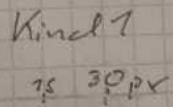 Kind 1
15 30 px